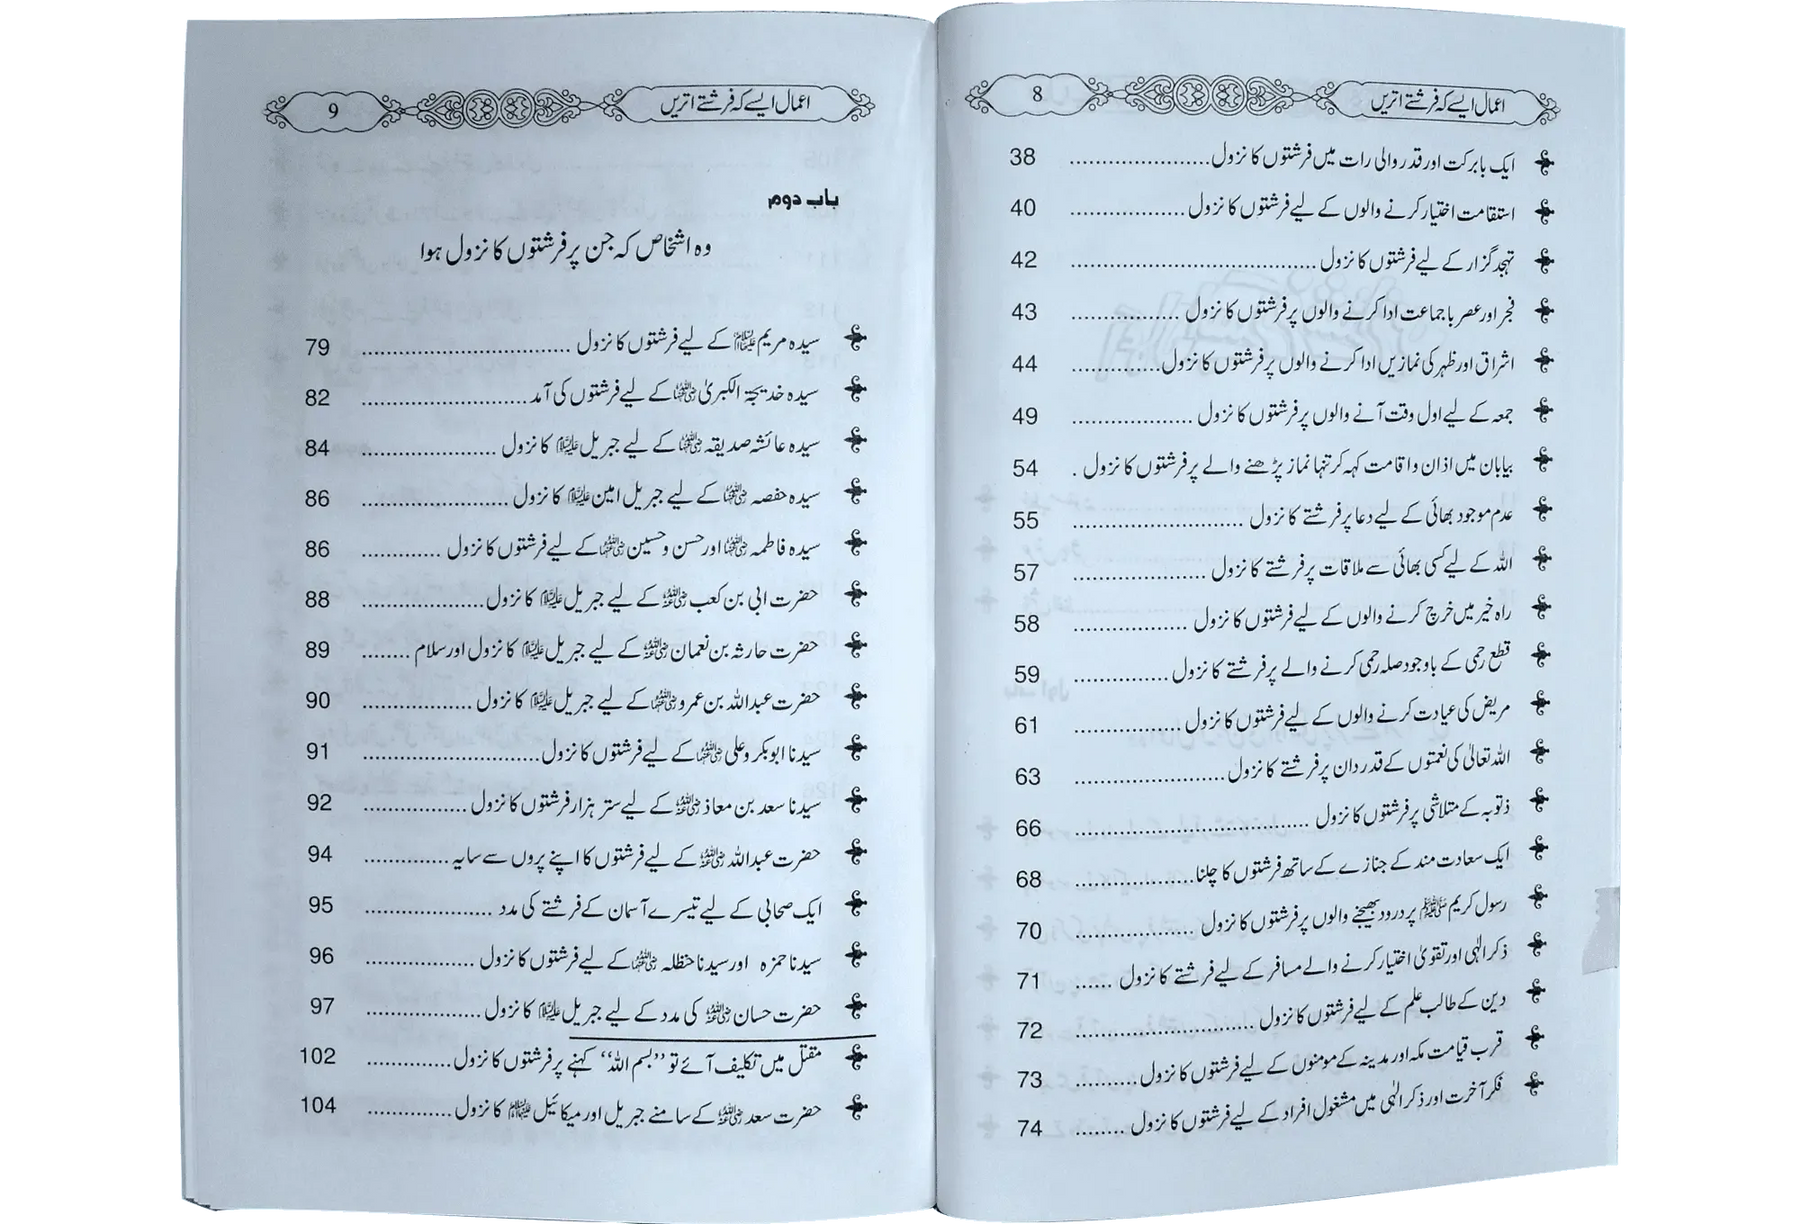 اعمال ایسے کہ فرشتے اتریں 8
ایک بابرکت اور قدر والی رات میں فرشتوں کا نزول ...................... 38
استقامت اختیار کرنے والوں کے لیے فرشتوں کا نزول ................... 40
تہجد گزار کے لیے فرشتوں کا نزول ........................................ 42
فجر اور عصر باجماعت ادا کرنے والوں پر فرشتوں کا نزول .................. 43
اشراق اور ظہر کی نمازیں ادا کرنے والوں پر فرشتوں کا نزول ............... 44
جمعہ کے لیے اول وقت آنے والوں پر فرشتوں کا نزول .................... 49
بیابان میں اذان واقامت کہہ کر تنہا نماز پڑھنے والے پر فرشتوں کا نزول . 54
عدم موجود بھائی کے لیے دعا پر فرشتے کا نزول ............................ 55
اللہ کے لیے کسی بھائی سے ملاقات پر فرشتے کا نزول ...................... 57
راہ خیر میں خرچ کرنے والوں کے لیے فرشتوں کا نزول ................... 58
قطع رحمی کے باوجود صلہ رحمی کرنے والے پر فرشتے کا نزول ................ 59
مریض کی عیادت کرنے والوں کے لیے فرشتوں کا نزول .................. 61
اللہ تعالیٰ کی نعمتوں کے قدر دان پر فرشتے کا نزول ......................... 63
توبہ کے متلاشی پر فرشتوں کا نزول ....................................... 66
ایک سعادت مند کے جنازے کے ساتھ فرشتوں کا چلنا .................... 68
رسول کریم ﷺ پر درود بھیجنے والوں پر فرشتوں کا نزول ................... 70
ذکر الٰہی اور تقویٰ اختیار کرنے والے مسافر کے لیے فرشتے کا نزول ...... 71
دین کے طالب علم کے لیے فرشتوں کا نزول .............................. 72
قرب قیامت مکہ اور مدینہ کے مومنوں کے لیے فرشتوں کا نزول .......... 73
فکر آخرت اور ذکر الٰہی میں مشغول افراد کے لیے فرشتوں کا نزول ........ 74
اعمال ایسے کہ فرشتے اتریں 9
باب دوم
وہ اشخاص کہ جن پر فرشتوں کا نزول ہوا
سیدہ مریم علیہا السلام کے لیے فرشتوں کا نزول .................................. 79
سیدہ خدیجۃ الکبریٰ رضی اللہ عنہا کے لیے فرشتوں کی آمد ........................... 82
سیدہ عائشہ صدیقہ رضی اللہ عنہا کے لیے جبریل علیہ السلام کا نزول ...................... 84
سیدہ حفصہ رضی اللہ عنہا کے لیے جبریل امین علیہ السلام کا نزول ........................ 86
سیدہ فاطمہ رضی اللہ عنہا اور حسن وحسین رضی اللہ عنہما کے لیے فرشتوں کا نزول ............ 86
حضرت ابی بن کعب رضی اللہ عنہ کے لیے جبریل علیہ السلام کا نزول .................... 88
حضرت حارثہ بن نعمان رضی اللہ عنہ کے لیے جبریل علیہ السلام کا نزول اور سلام ........ 89
حضرت عبداللہ بن عمرو رضی اللہ عنہما کے لیے جبریل علیہ السلام کا نزول .................. 90
سیدنا ابوبکر وعلی رضی اللہ عنہما کے لیے فرشتوں کا نزول ............................. 91
سیدنا سعد بن معاذ رضی اللہ عنہ کے لیے ستر ہزار فرشتوں کا نزول ................. 92
حضرت عبداللہ رضی اللہ عنہ کے لیے فرشتوں کا اپنے پروں سے سایہ .............. 94
ایک صحابی کے لیے تیسرے آسمان کے فرشتے کی مدد ..................... 95
سیدنا حمزہ اور سیدنا حنظلہ رضی اللہ عنہما کے لیے فرشتوں کا نزول .................. 96
حضرت حسان رضی اللہ عنہ کی مدد کے لیے جبریل علیہ السلام کا نزول ................... 97
مقتل میں تکلیف آئے تو ”بسم اللہ“ کہنے پر فرشتوں کا نزول .............. 102
حضرت سعد رضی اللہ عنہ کے سامنے جبریل اور میکائیل علیہما السلام کا نزول .............. 104